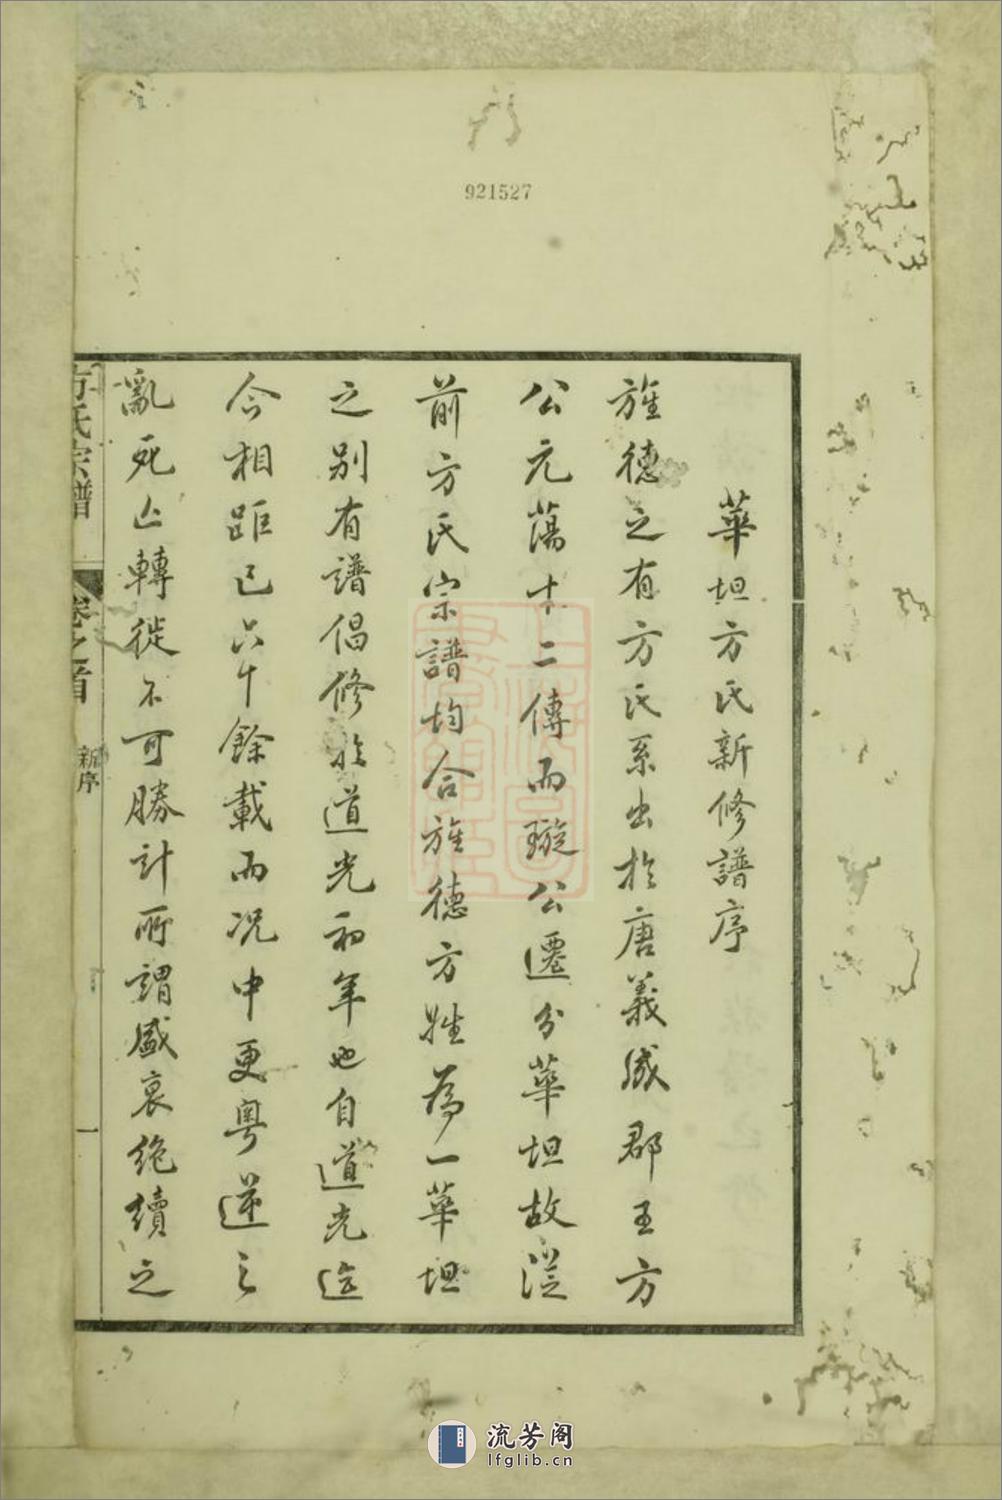 921527
華坦方氏新修譜序
旌德之有方氏系出於唐義成郡王方
公元蕩十二傳而璇公遷分華坦故從
前方氏宗譜均合旌德方姓為一華坦
之别有譜倡修於道光初年也自道光迄
今相距已六十餘載而况中更粵逆之
亂死亡轉徙不可勝計所謂盛衰絶續之
方氏宗譜
卷之首
新序
一
流芳阁
lfglib.cn